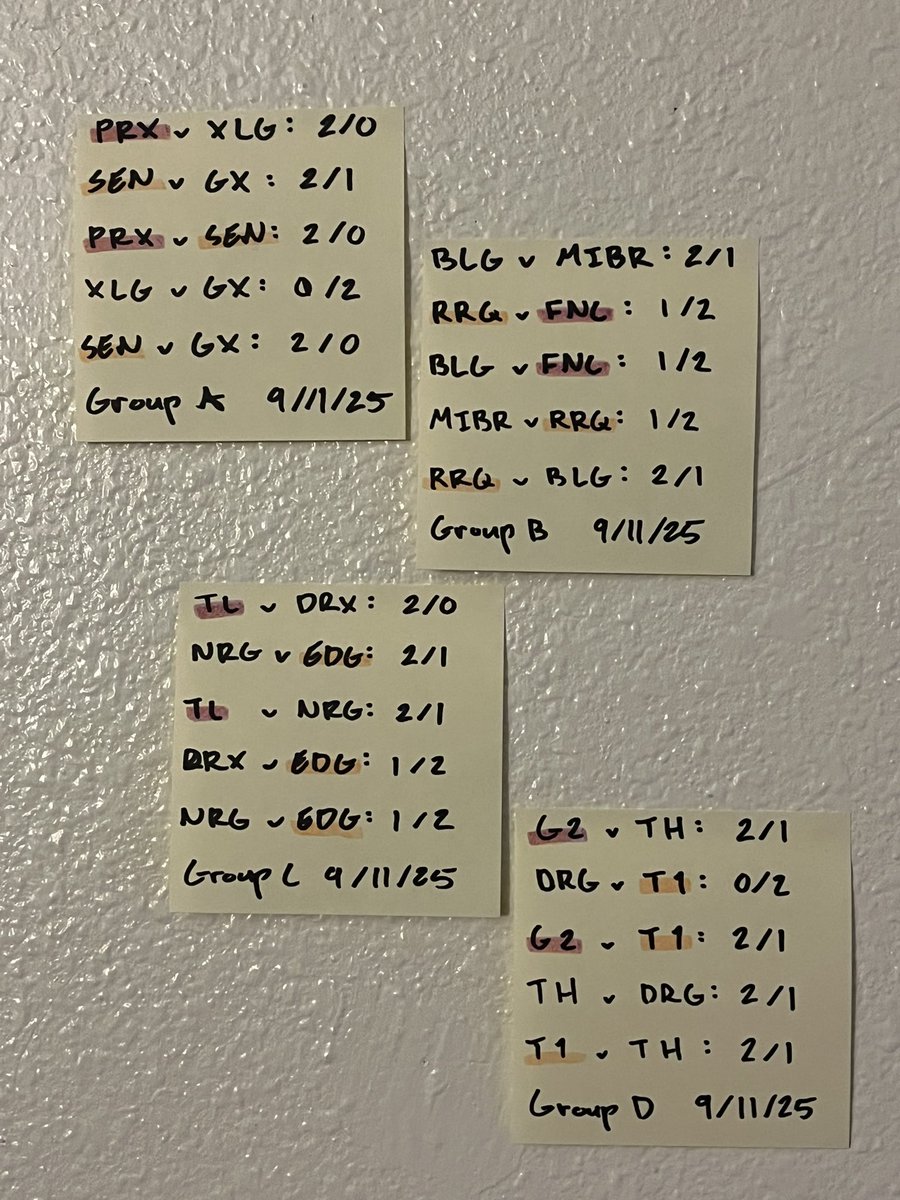 PRX v XLG: 2/0
SEN v GX: 2/1
PRX v SEN: 2/0
XLG v GX: 0/2
SEN v GX: 2/0
Group A 9/11/25
BLG v MIBR: 2/1
RRQ v FNC: 1/2
BLG v FNC: 1/2
MIBR v RRQ: 1/2
RRQ v BLG: 2/1
Group B 9/11/25
TL v DRX: 2/0
NRG v EDG: 2/1
TL v NRG: 2/1
DRX v EDG: 1/2
NRG v EDG: 1/2
Group C 9/11/25
G2 v TH: 2/1
DRG v T1: 0/2
G2 v T1: 2/1
TH v DRG: 2/1
T1 v TH: 2/1
Group D 9/11/25